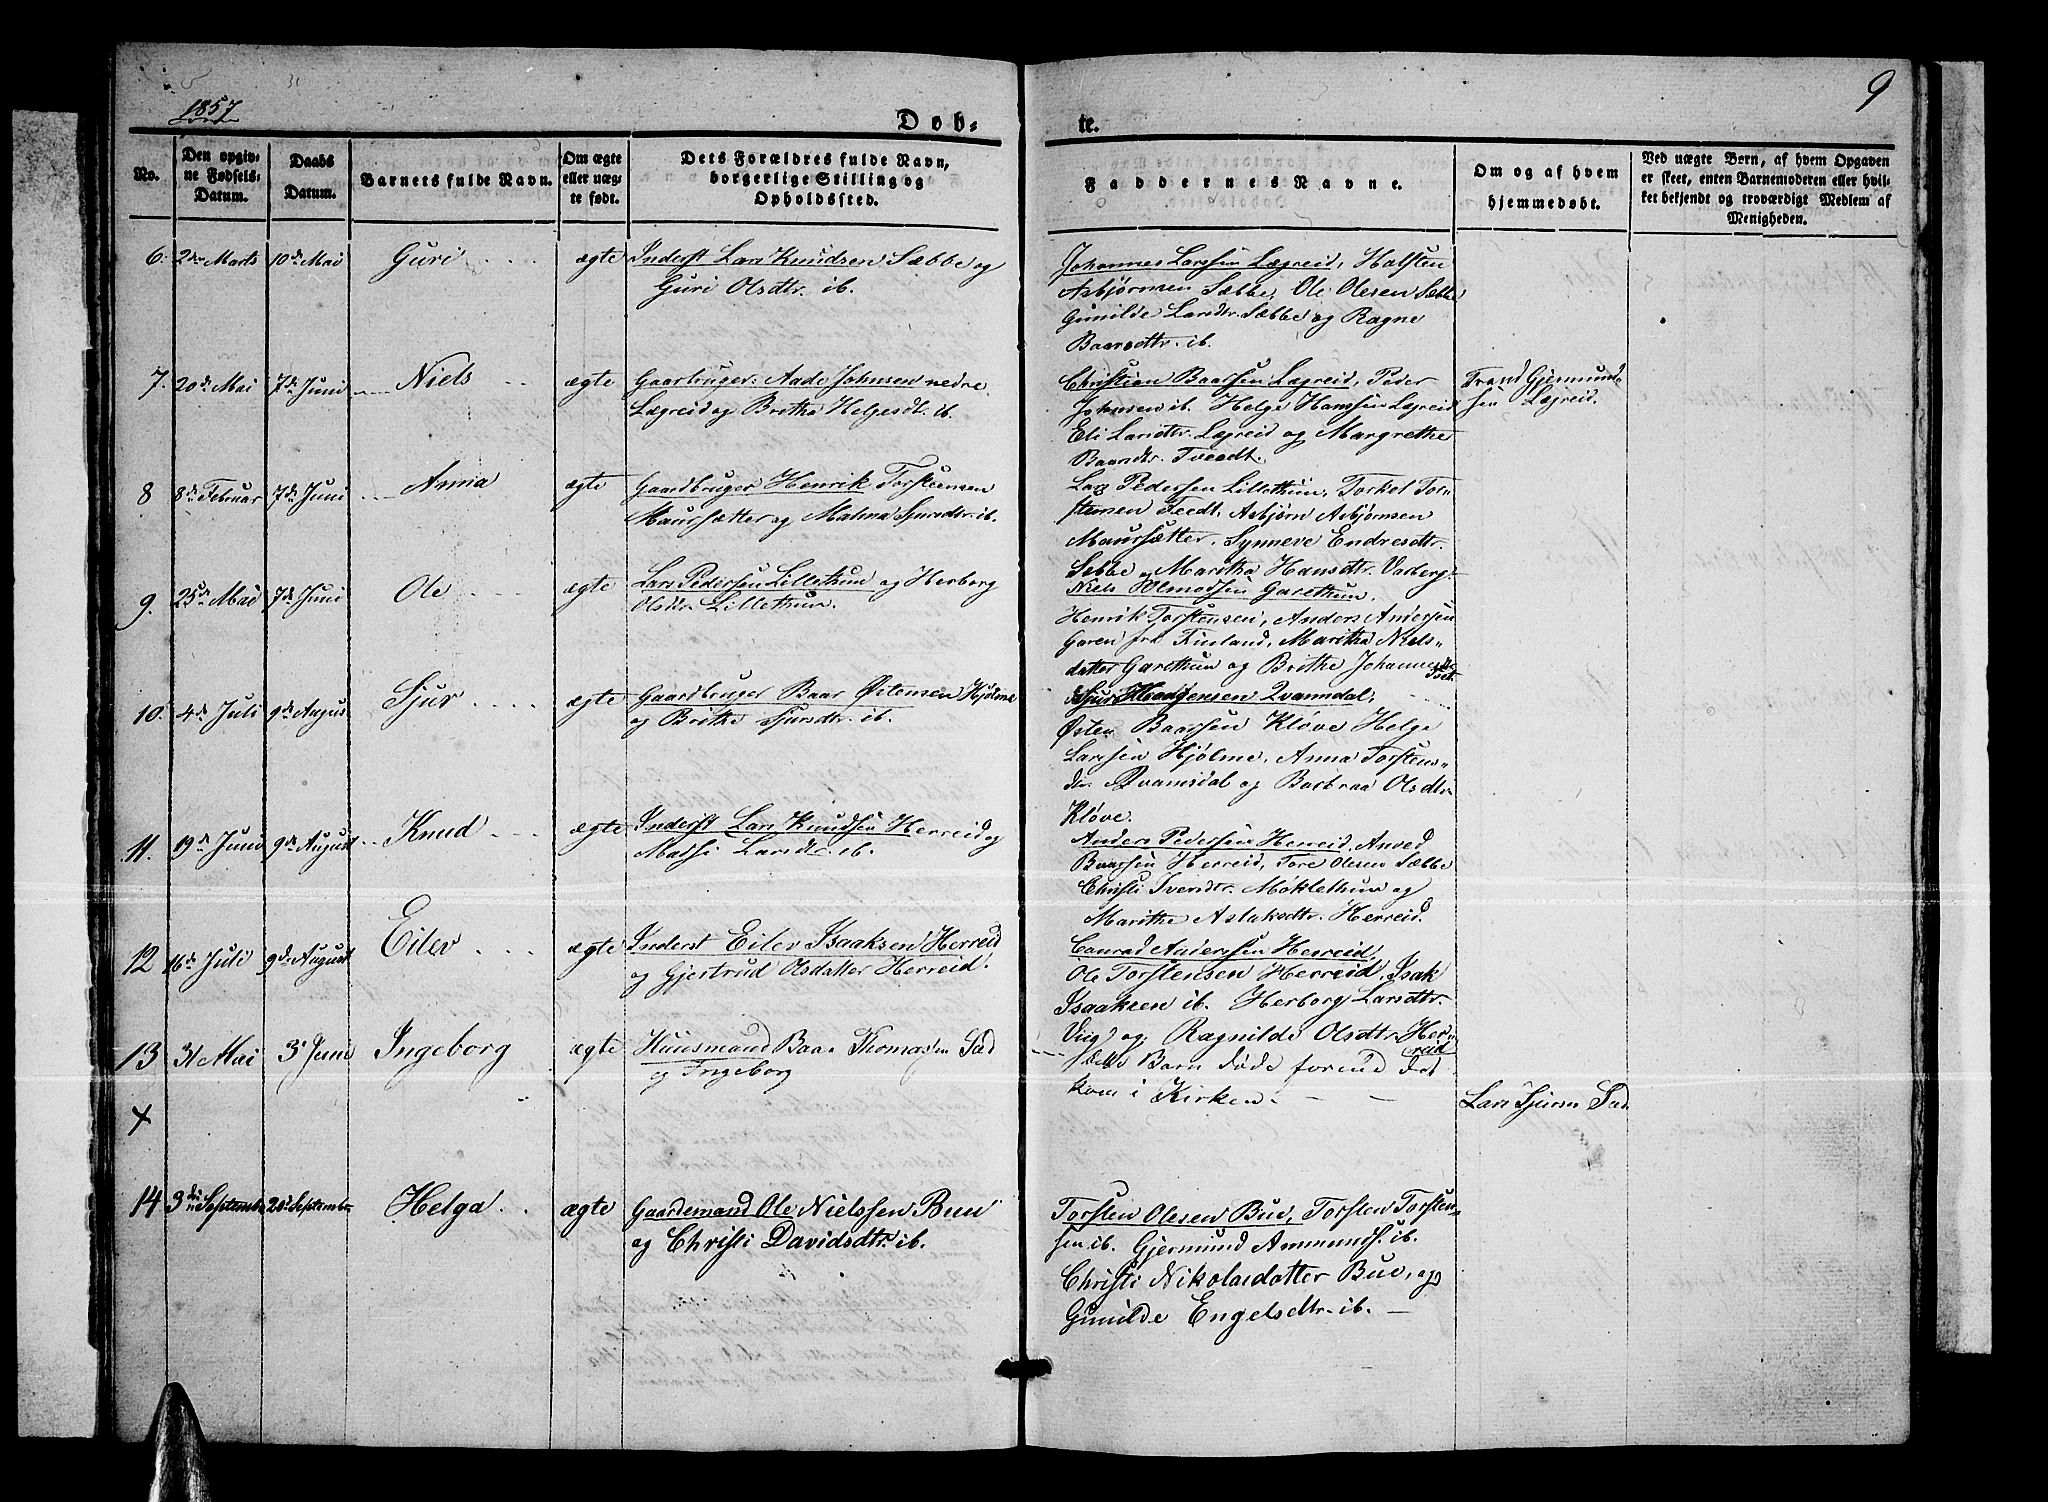 1857
9
Døb-
te.
No.
Den opgiv-
ne Fødsels-
Datum.
Daabs
Datum.
Barnets fulde Navn.
Om ægte
eller uæg-
te født.
Dets Forældres fulde Navn,
borgerlige Stilling og
Opholdssted.
Faddernes Navne.
Om og af hvem
hjemmedøbt.
Ved uægte Børn, af hvem Opgaven
er skeet, enten Barnemoderen eller hvil-
ket bekjendt og troværdigt Medlem af
Menigheden.
6. 2den Marts 10de Mai Guri ægte Inderst Lars Knudsen Sæbbe og
Guri Olsdtr. ib.
Johannes Larssen Lægreid, Halsten
Asbjørnsen Sæbbe, Ole Olesen Sæbbe
Gunilde Larsdtr. Sæbbe og Ragne
Baarsdtr. ib.
7. 20de Mai 7de Juni Niels ægte Gaarbruger Aade Johnsen nedre
Lægreid og Britha Helgesdt. ib.
Christien Baarsen Lægreid, Peder
Johnsen ib. Helge Hanssen Lægreid
Eli Larsdtr. Lægreid og Margrethe
Baarsdtr. Tveedt.
Trond Gjermund-
sen Lægreid.
8 8de Februar 7de Juni Anna ægte Gaardbruger Henrik Torsteensen
Maursætter og Malina Sjursdtr. ib.
Lars Pedersen Lillethun, Torkel Tor-
stensen Feedt, Asbjørn Asbjørnsen
Maursætter, Synneve Endresdtr.
Sæbbe og Maritha Hansdtr. Varberg.
9. 25de Mai 7de Juni Ole ægte Lars Pedersen Lillethun og Herborg
Olsdr. Lillethun.
Niels Olmodsen Garethun,
Henrik Torstensen, Anders Andersen
Garen fra Finland, Maritha Niels-
datter Garethun og Brithe Johannesdtr
Tvet.
10. 4de Juli 9de August Sjur ægte Gaardbruger Baar Østensen Hjølme
og Brithe Sjursdtr. ib.
Sjur Haagensen Qvamsdal,
Østen Baarsen Kløve Helge
Larsen Hjølme, Anna Torstens-
dtr. Qvamsdal og Barbraa Olsdtr.
Kløve.
11. 19de Juni 9de August Knud ægte Inderst Lars Knudsen Herreid og
Madsi Larsdtr. ib.
Anders Pedersen Herreid, Anved
Baarsen Herreid, Tore Olesen Sæbbe
Christi Svensdtr. Møklethun og
Marithe Aslaksdtr. Herreid.
12 16de Juli 9de August Eilev ægte Inderst Eilev Isaaksen Herreid
og Gjertrud Olsdatter Herreid.
Conrad Anderssen Herreid,
Ole Torstensen Herreid, Isak
Isaaksen ib. Herborg Larsdtr.
Viig og Ragnilde Olsdtr. Her-
reid
13 31 Mai 3de Juni Ingeborg ægte Huusmand Baar Thomassen Sæd
og Ingeborg
dette Barn døde forend det
kom i Kirken.
Lars Sjursen Sæd
+
14 3die September 20de September Helga ægte Gaardmand Ole Nielssen Buu
og Christi Davidsdtr. ib.
Torsten Olesen Bue, Torsten Torsten-
sen ib. Gjermund Ammunds. ib.
Christi Nikolaidatter Bue, og
Gunilde Engelsdtr. ib.